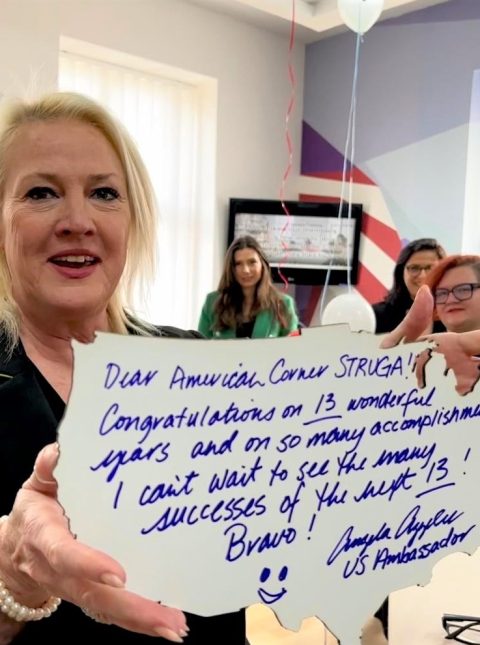 Dear American Corner STRUGA!!
Congratulations on 13 wonderful
years and on so many accomplishme
I can't wait to see the many
successes of the next 13!
Bravo!
Angela Aggeler
US Ambassador